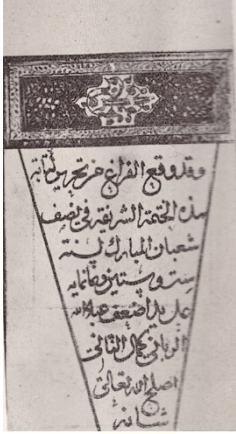 وقد وقع الفراغ من تحرير كتابة
هذه الختمة الشريفة في نصف
شعبان المبارك لسنة
ست وستين وثمانمايه
على يد اضعف عباد الله
الرباني كمال الثاني
اصلح الله تعالى
شانه